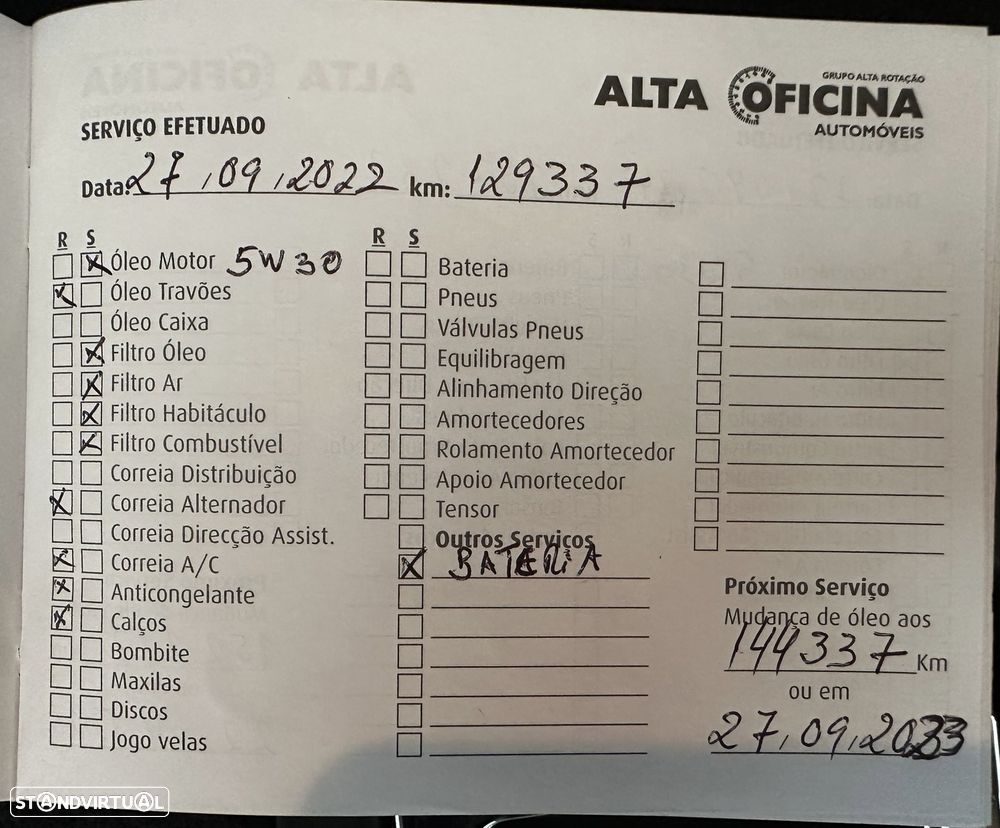 GRUPO ALTA ROTAÇÃO
ALTA OFICINA
AUTOMÓVEIS
SERVIÇO EFETUADO
Data: 27,09,2022 km: 129337
R S
Óleo Motor 5W30
Óleo Travões
Óleo Caixa
Filtro Óleo
Filtro Ar
Filtro Habitáculo
Filtro Combustível
Correia Distribuição
Correia Alternador
Correia Direcção Assist.
Correia A/C
Anticongelante
Calços
Bombite
Maxilas
Discos
Jogo velas
R S
Bateria
Pneus
Válvulas Pneus
Equilibragem
Alinhamento Direção
Amortecedores
Rolamento Amortecedor
Apoio Amortecedor
Tensor
Outros Serviços
BATERIA
Próximo Serviço
Mudança de óleo aos
144337 Km
ou em
27,09,2023
STANDVIRTUAL